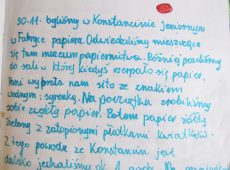 30.11. byliśmy w Konstancinie Jeziornym
w Fabryce papieru. Odwiedziliśmy mieszczące
się tam muzeum papiernictwa. Później poszliśmy
do sali w której kiedyś czerpało się papier.
Pani wyjęła nam sito ze znakiem
wodnym - syrenką. Na początku zrobiliśmy
sobie zwykły papier. Potem papier róży
zielony z zatopionymi płatkami kwiatków.
Z tego powodu że Konstancin jest
daleko jechaliśmy ok. 1 godz. Na